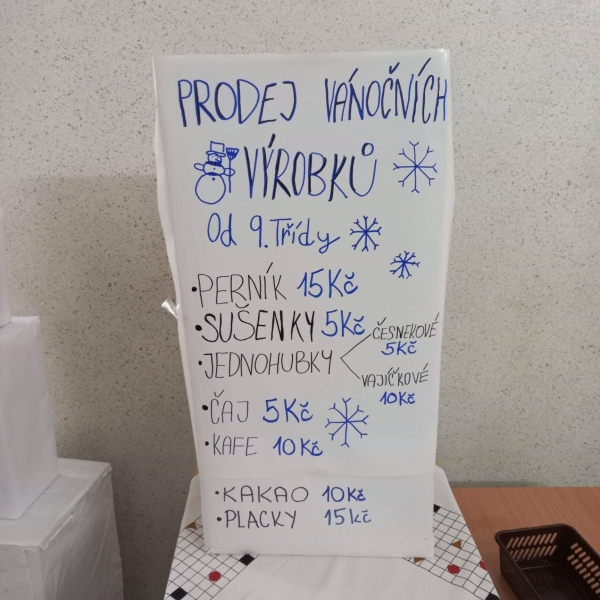 PRODEJ VÁNOČNÍCH
VÝROBKŮ
Od 9. Třídy
• PERNÍK 15Kč
• SUŠENKY 5Kč
• JEDNOHUBKY
ČESNEKOVÉ
5Kč
VAJÍČKOVÉ
10Kč
• ČAJ 5Kč
• KAFE 10Kč
• KAKAO 10Kč
• PLACKY 15kč